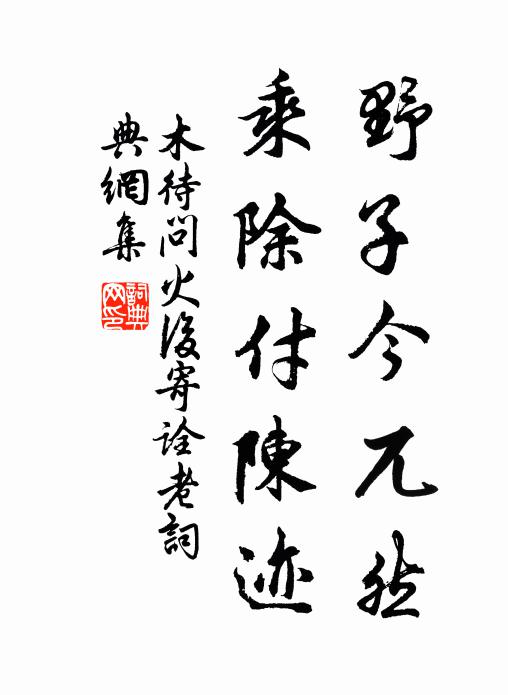 野子今兀然
乘除付陳迹
木待問火後寄詮老詞
典網集
詞典網印